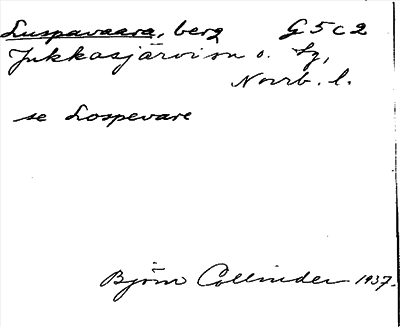 Luspavaara, berg G5c2
Jukkasjärvi sn o. tg,
Norrb. l.
se Lospevare
Björn Collinder 1937.